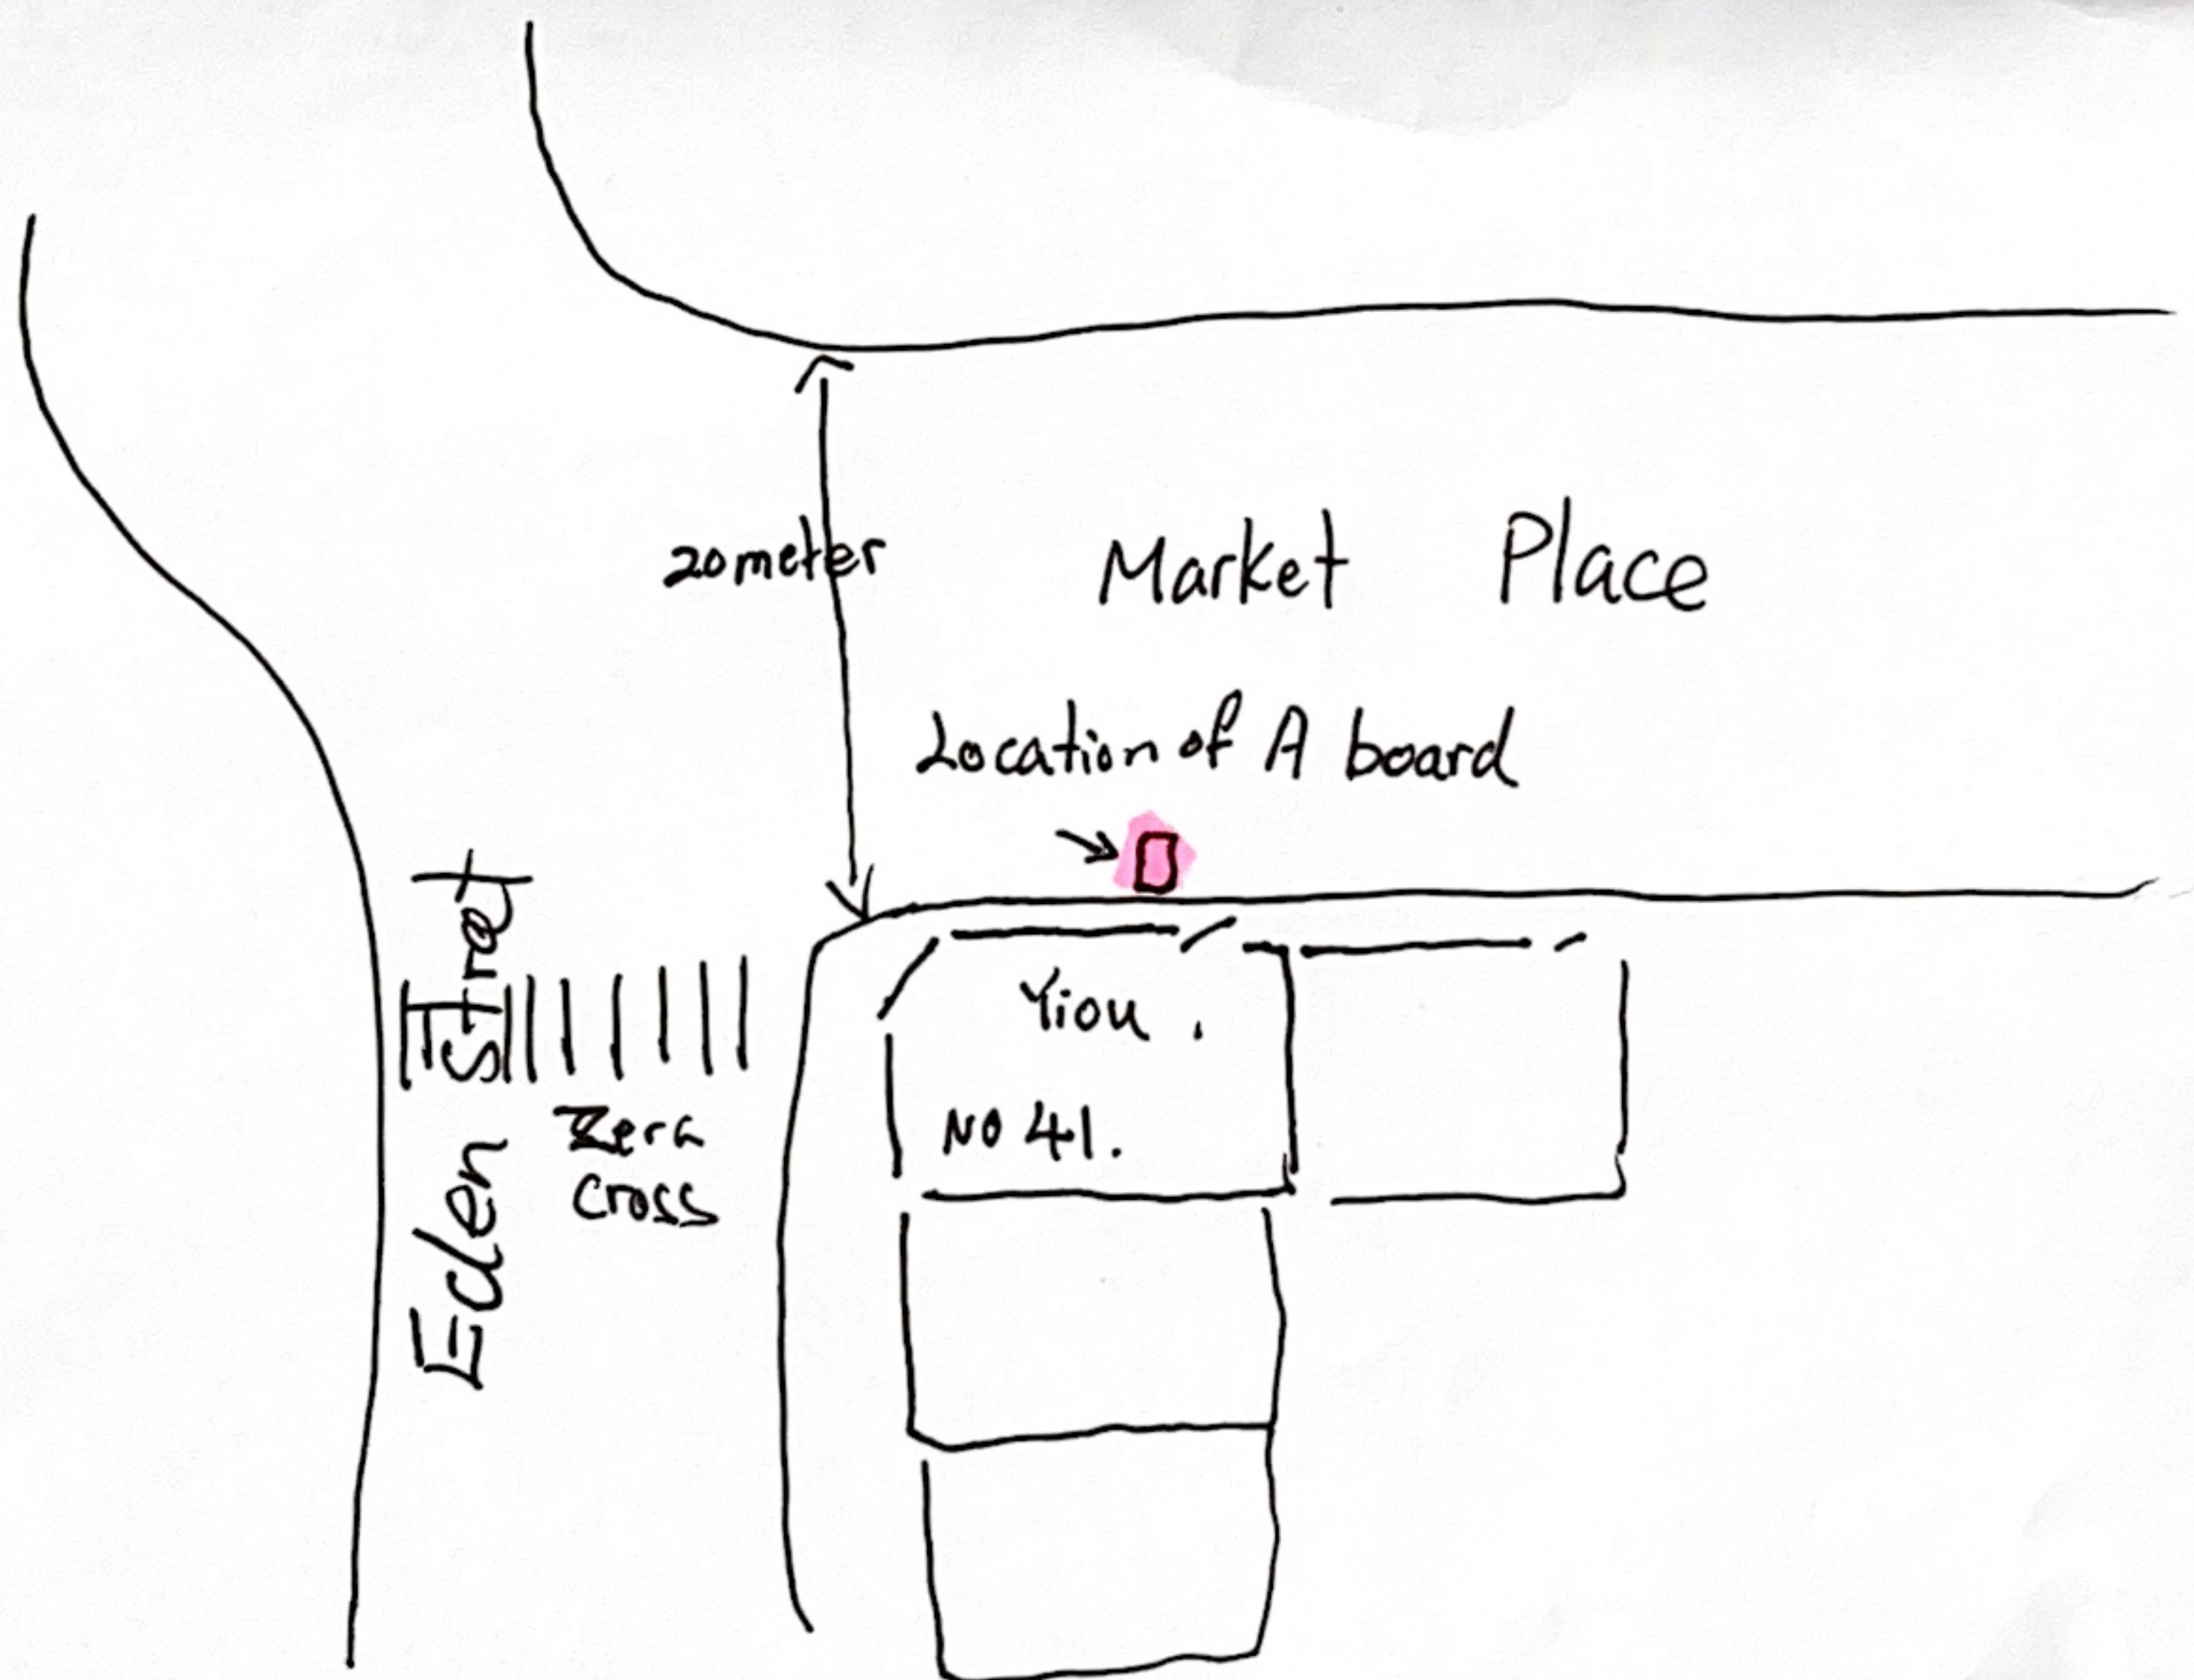 20meter
Market Place
Location of A board
Eden Stret
Zera
Cross
Yiou.
NO 41.